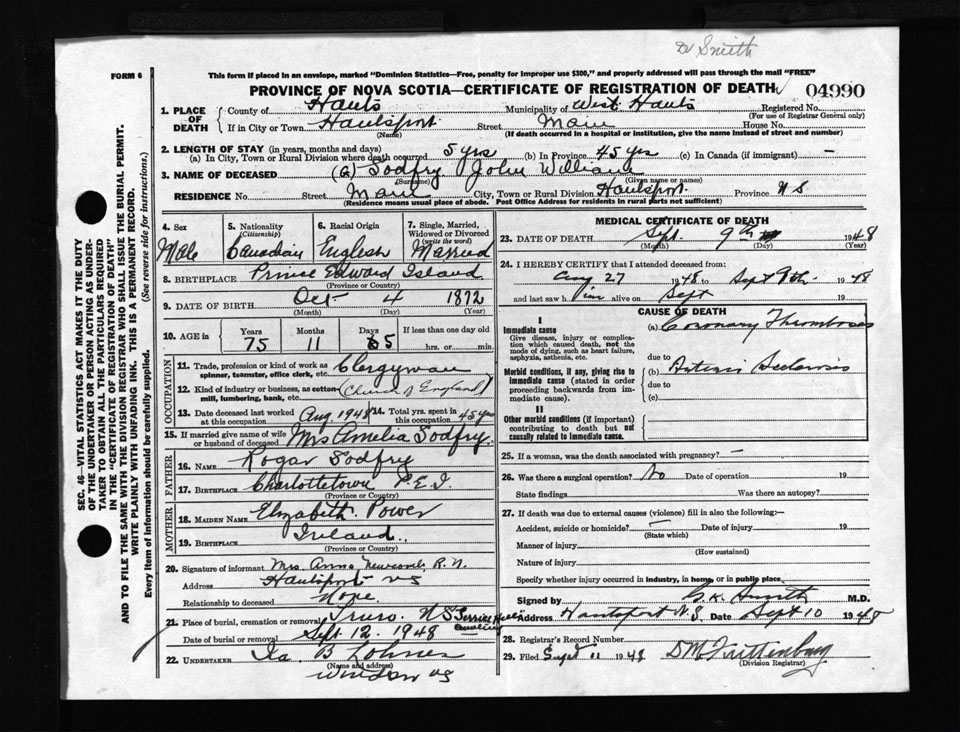 Dr Smith
FORM 6
This form if placed in an envelope, marked "Dominion Statistics—Free, penalty for improper use $300," and properly addressed will pass through the mail "FREE"
PROVINCE OF NOVA SCOTIA—CERTIFICATE OF REGISTRATION OF DEATH 04990
1. PLACE OF DEATH County of Hants Municipality of West Hants Registered No.
(For use of Registrar General only)
If in City or Town Hantsport Street Main House No.
(Name) (If death occurred in a hospital or institution, give the name instead of street and number)
2. LENGTH OF STAY (in years, months and days)
(a) In City, Town or Rural Division where death occurred 5 yrs (b) In Province 45 yrs (c) In Canada (if immigrant) —
3. NAME OF DECEASED (G) Godfry John William
(Surname) (Given name or names)
RESIDENCE Street Main City, Town or Rural Division Hantsport Province N S
(Residence means usual place of abode. Post Office Address for residents in rural parts not sufficient)
4. Sex Male
5. Nationality (Citizenship) Canadian
6. Racial Origin English
7. Single, Married, Widowed or Divorced (write the word) Married
8. BIRTHPLACE Prince Edward Island
(Province or Country)
9. DATE OF BIRTH Oct 4 1872
(Month) (Day) (Year)
10. AGE in Years 75 Months 11 Days 5 If less than one day old
hrs. or min.
OCCUPATION
11. Trade, profession or kind of work as spinner, teamster, office clerk, etc. Clergyman
12. Kind of industry or business, as cotton mill, lumbering, bank, etc. (Church of England)
13. Date deceased last worked at this occupation Aug 1948 14. Total yrs. spent in this occupation 45 yrs
15. If married give name of wife or husband of deceased Mrs Amelia Godfry
FATHER
16. NAME Rogar Godfry
17. BIRTHPLACE Charlottetown P.E.I.
(Province or Country)
MOTHER
18. MAIDEN NAME Elizabeth Power
19. BIRTHPLACE Ireland
(Province or Country)
20. Signature of informant Mrs. Anna Newcomb, R. N.
Address Hantsport NS
Relationship to deceased None
21. Place of burial, cremation or removal Truro. N S Terrice Hill
Date of burial or removal Sept. 12. 1948
22. UNDERTAKER Ira B Lohnes
(Name and address)
Windsor NS
MEDICAL CERTIFICATE OF DEATH
23. DATE OF DEATH Sept. 9th 1948
(Month) (Day) (Year)
24. I HEREBY CERTIFY that I attended deceased from:
Aug 27 1948 to Sept 9th 1948
and last saw him alive on Sept 19
CAUSE OF DEATH
I
Immediate cause
Give disease, injury or complication which caused death, not the mode of dying, such as heart failure, asphyxia, asthenia, etc.
(a) Coronary Thrombosis
due to
Morbid conditions, if any, giving rise to immediate cause (stated in order proceeding backwards from immediate cause).
(b) Arterio Sclerosis
due to
(c)
II
Other morbid conditions (if important) contributing to death but not causally related to immediate cause.
25. If a woman, was the death associated with pregnancy? —
26. Was there a surgical operation? No Date of operation 19
State findings Was there an autopsy?
27. If death was due to external causes (violence) fill in also the following:—
Accident, suicide or homicide? — Date of injury 19
(State which)
Manner of injury
(How sustained)
Nature of injury
Specify whether injury occurred in industry, in home, or in public place
Signed by G. K. Smith M.D.
Address Hantsport N.S. Date Sept 10 1948
28. Registrar's Record Number
29. Filed Sept 11 1948
(Division Registrar)
SEC. 46—VITAL STATISTICS ACT MAKES IT THE DUTY
OF THE UNDERTAKER OR PERSON ACTING AS UNDER-
TAKER TO OBTAIN ALL THE PARTICULARS REQUIRED
IN THE "CERTIFICATE OF REGISTRATION OF DEATH"
AND TO FILE THE SAME WITH THE DIVISION REGISTRAR WHO SHALL ISSUE THE BURIAL PERMIT.
WRITE PLAINLY WITH UNFADING INK. THIS IS A PERMANENT RECORD.
Every item of information should be carefully supplied. (See reverse side for instructions.)